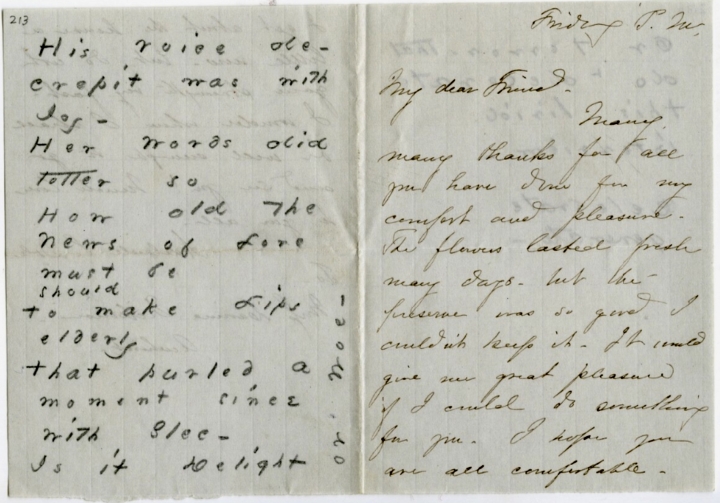 213
His voice de-
crepit was with
Joy -
Her words did
totter so
How old the
News of Love
must be
should
to make Lips
elderly
that purled a
moment since
with Glee -
Is it Delight
or Woe -
Friday P.M.
My dear Friend.
Many
many thanks for all
you have done for my
comfort and pleasure.
The flowers lasted fresh
many days - but the
preserve was so good I
couldn't keep it - It would
give me great pleasure
if I could do something
for you. I hope you
are all comfortable -